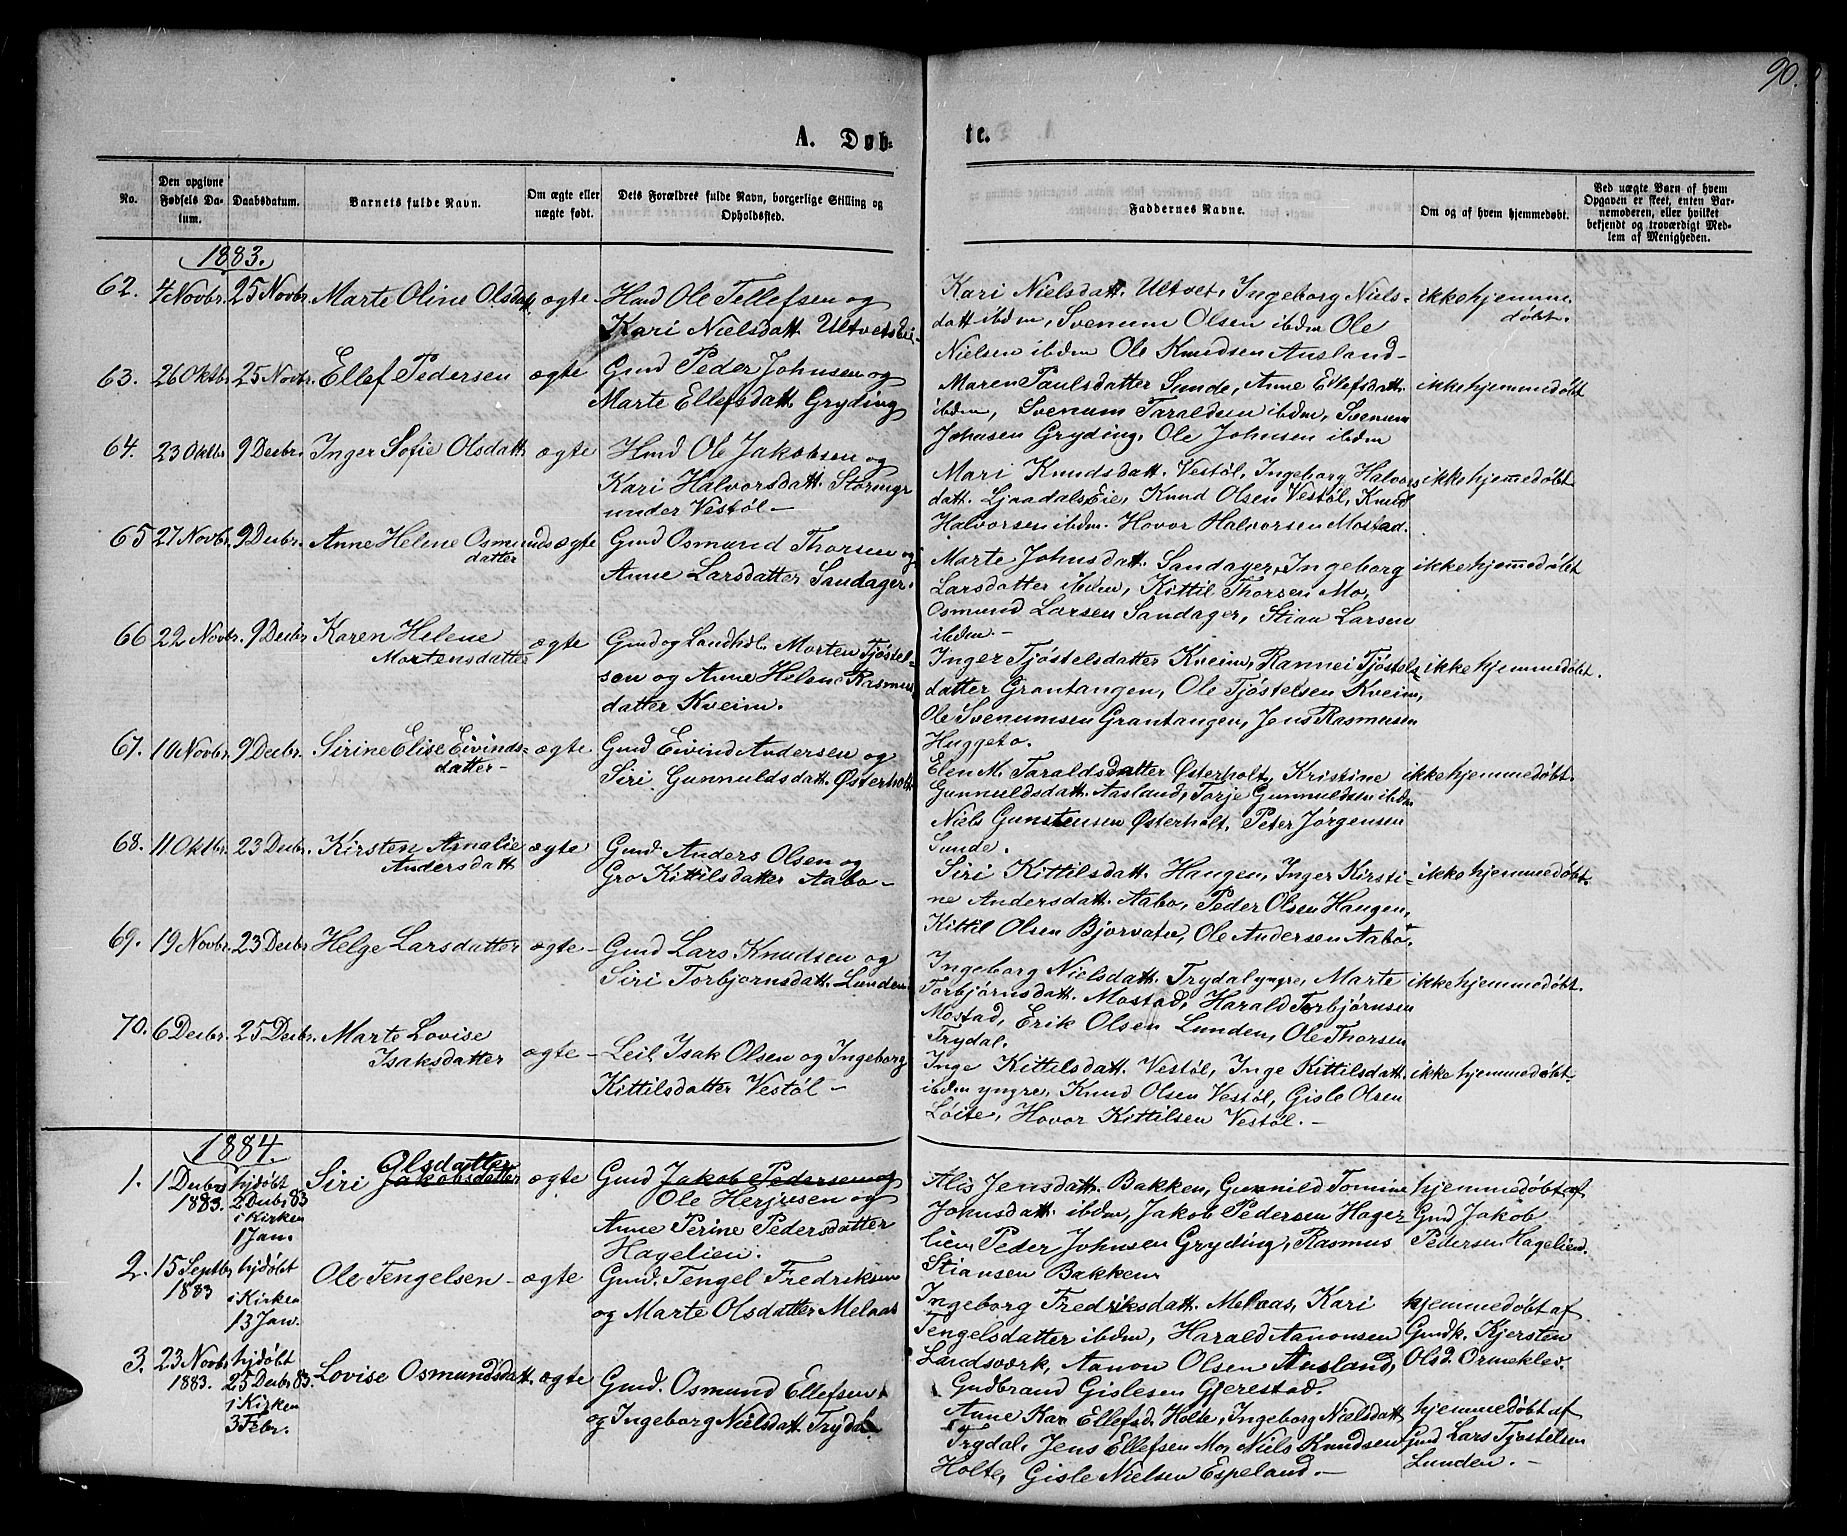 90.
A. Døb-
te.
No.
Den opgivne Fødsels Da-tum.
Daabsdatum.
Barnets fulde Navn.
Om ægte eller uægte født.
Dets Forældres fulde Navn, borgerlige Stilling og Opholdssted.
Faddernes Navne.
Om og af hvem hjemmedøbt.
Ved uægte Barn af hvem Opgaven er skeet, enten Bar-nemoderen, eller hvilket bekjendt og troværdigt Med-lem af Menigheden.
1883.
62. 4 Novbr. 25 Novbr. Marte Oline Olsdatt. ægte
Hmd Ole Tellefsen og
Kari Nielsdatt. Ultvets Eie
Kari Nielsdatt. Ultvet, Ingeborg Niels-
datt ibdm, Svenum Olsen ibdm Ole
Nielsen ibdm Ole Knudsen Ausland-
ikke hjemme
døbt.
63. 26 Oktbr. 25 Novbr. Ellef Pedersen ægte
Gmd Peder Johnsen og
Marte Ellefsdatt. Gryding
Maren Paulsdatter Sunde, Anne Ellefsdatt.
ibdm, Svenum Taraldsen ibdm, Svenum
Johnsen Gryding, Ole Johnsen ibdm
ikke hjemmedøbt
64. 23 Oktbr 9 Decbr. Inger Sofie Olsdatt. ægte
Hmd Ole Jakobsen og
Kari Halvorsdatt. Stormyr
under Vestøl-
Mari Knudsdatt. Vestøl, Ingeborg Halvors
datt. Ljaadals Eie, Knud Olsen Vestøl, Knud
Halvorsen ibdm. Hovor Halvorsen Mostad.
ikke hjemmedøbt
65 27 Novbr. 9 Decbr. Anne Helene Osmunds
datter
ægte
Gmd Osmund Thorsen og
Anne Larsdatter Sandager.
Marte Johnsdatt. Sandager, Ingeborg
Larsdatter ibdm, Kittil Thorsen Mo,
Osmund Larsen Sandager, Stian Larsen
ibdm.-
ikke hjemmedøbt
66 22 Novbr. 9 Decbr. Karen Helene
Mortensdatter
ægte
Gmd og Landhdl. Morten Tjøstel-
sen og Anne Helene Rasmus
datter Kveim.
Inger Tjøstelsdatter Kveim, Rannei Tjøstels
datter Grantangen, Ole Tjøstelsen Kveim,
Ole Svenumsen Grantangen, Jens Rasmusen
Huggeto.
ikke hjemmedøbt.
67. 10 Novbr. 9 Decbr. Sirine Elise Eivinds-
datter-
ægte
Gmd Eivind Andersen og
Siri Gunnuldsdatt. Østerholt
Elen M. Taraldsdatter Østerholt, Kristine
Gunnuldsdatt. Aasland, Torje Gunnuldsen ibdm
Niels Gunstensen Østerholt, Peter Jørgensen
Sunde.
ikke hjemmedøbt.
68. 11 Oktbr. 23 Decbr. Kirsten Amalie
Andersdatt
ægte
Gmd. Anders Olsen og
Gro Kittilsdatter Aabo-
Siri Kittilsdatt. Haugen, Inger Kirsti-
ne Andersdatt. Aabo, Peder Olsen Haugen,
Kittil Olsen Bjorvatn, Ole Andersen Aabo.
ikke hjemmedøbt.
69. 19 Novbr. 23 Decbr Helge Larsdatter ægte-
Gmd Lars Knudsen og
Siri Torbjørnsdatt. Lunden
Ingeborg Nielsdatt. Trydal yngre, Marte
Torbjørnsdatt. Mostad, Harald Torbjørnsen
Mostad, Erik Olsen Lunden, Ole Thorsen
Trydal.
ikke hjemmedøbt.
70. 6 Decbr. 25 Decbr. Marte Lovise
Isaksdatter
ægte-
Leil. Isak Olsen og Ingeborg
Kittilsdatter Vestøl-
Inge Kittilsdatt. Vestøl, Inge Kittilsdatt.
ibdm yngre, Knud Olsen Vestøl, Gisle Olsen
Løite, Hovor Kittilsen Vestøl.-
ikke hjemmedøbt.
1884.
1. 1 Decbr
1883.
hjdøbt
2 Decbr 83
i Kirken
1 Jan.
Olsdatter
Siri Jakobsdatter ægte
Gmd Jakob Pedersen og
Ole Herjusen og
Anne Perine Pedersdatter
Hagelien.
Alis Jensdatt. Bakken, Gunnild Tomine
Johnsdatt. ibdm, Jakob Pedersen Hage-
lien, Peder Johnsen Gryding, Rasmus
Stiansen Bakken
hjemmedøbt af
Gmd Jakob
Pedersen Hagelien.
2. 15 Septbr
1883
hjdøbt
i Kirken
13 Jan.
Ole Tengelsen- ægte
Gmd. Tengel Fredriksen
og Marte Olsdatter Melaas
Ingeborg Fredriksdatt. Melaas, Kari
Tengelsdatter ibdm, Harald Aanonsen
Landsværk, Aanon Olsen Ausland,
Gudbrand Gislesen Gjerestad.
hjemmedøbt af
Gmdk. Kjersten
Olsd. Ormeklev
3. 23 Novbr
1883.
hjdøbt
25 Decbr 83.
i Kirken
3 Febr.
Lovise Osmundsdatt. ægte
Gmd. Osmund Ellefsen
og Ingeborg Nielsdatt. Trydal
Anne Kar Ellefsd. Holte, Ingeborg Nielsdatt
Trydal, Jens Ellefsen Mo, Niels Knudsen
Holte, Gisle Nielsen Espeland.-
hjemmedøbt af
Gmd Lars Tjøstelsen
Lunden.-